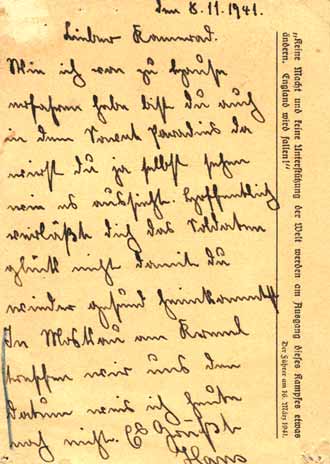 den 8.11.1941.
Lieber Kamerad.
Wie ich von zu Hause
erfahren habe bist du auch
in dem Sowjet Paradies da
wirst du ja selbst sehen
wie es aussieht. Hoffentlich
verläßt dich das Soldaten
glück nicht damit du
wieder gesund heimkommst
In Moskau am Kreml
treffen wir uns den
Datum weis ich heute
noch nicht. Es Grüßt
Hans
„Keine Macht und keine Unterstützung der Welt werden am Ausgang dieses Kampfes etwas
ändern. England wird fallen!“
Der Führer am 16. März 1941.